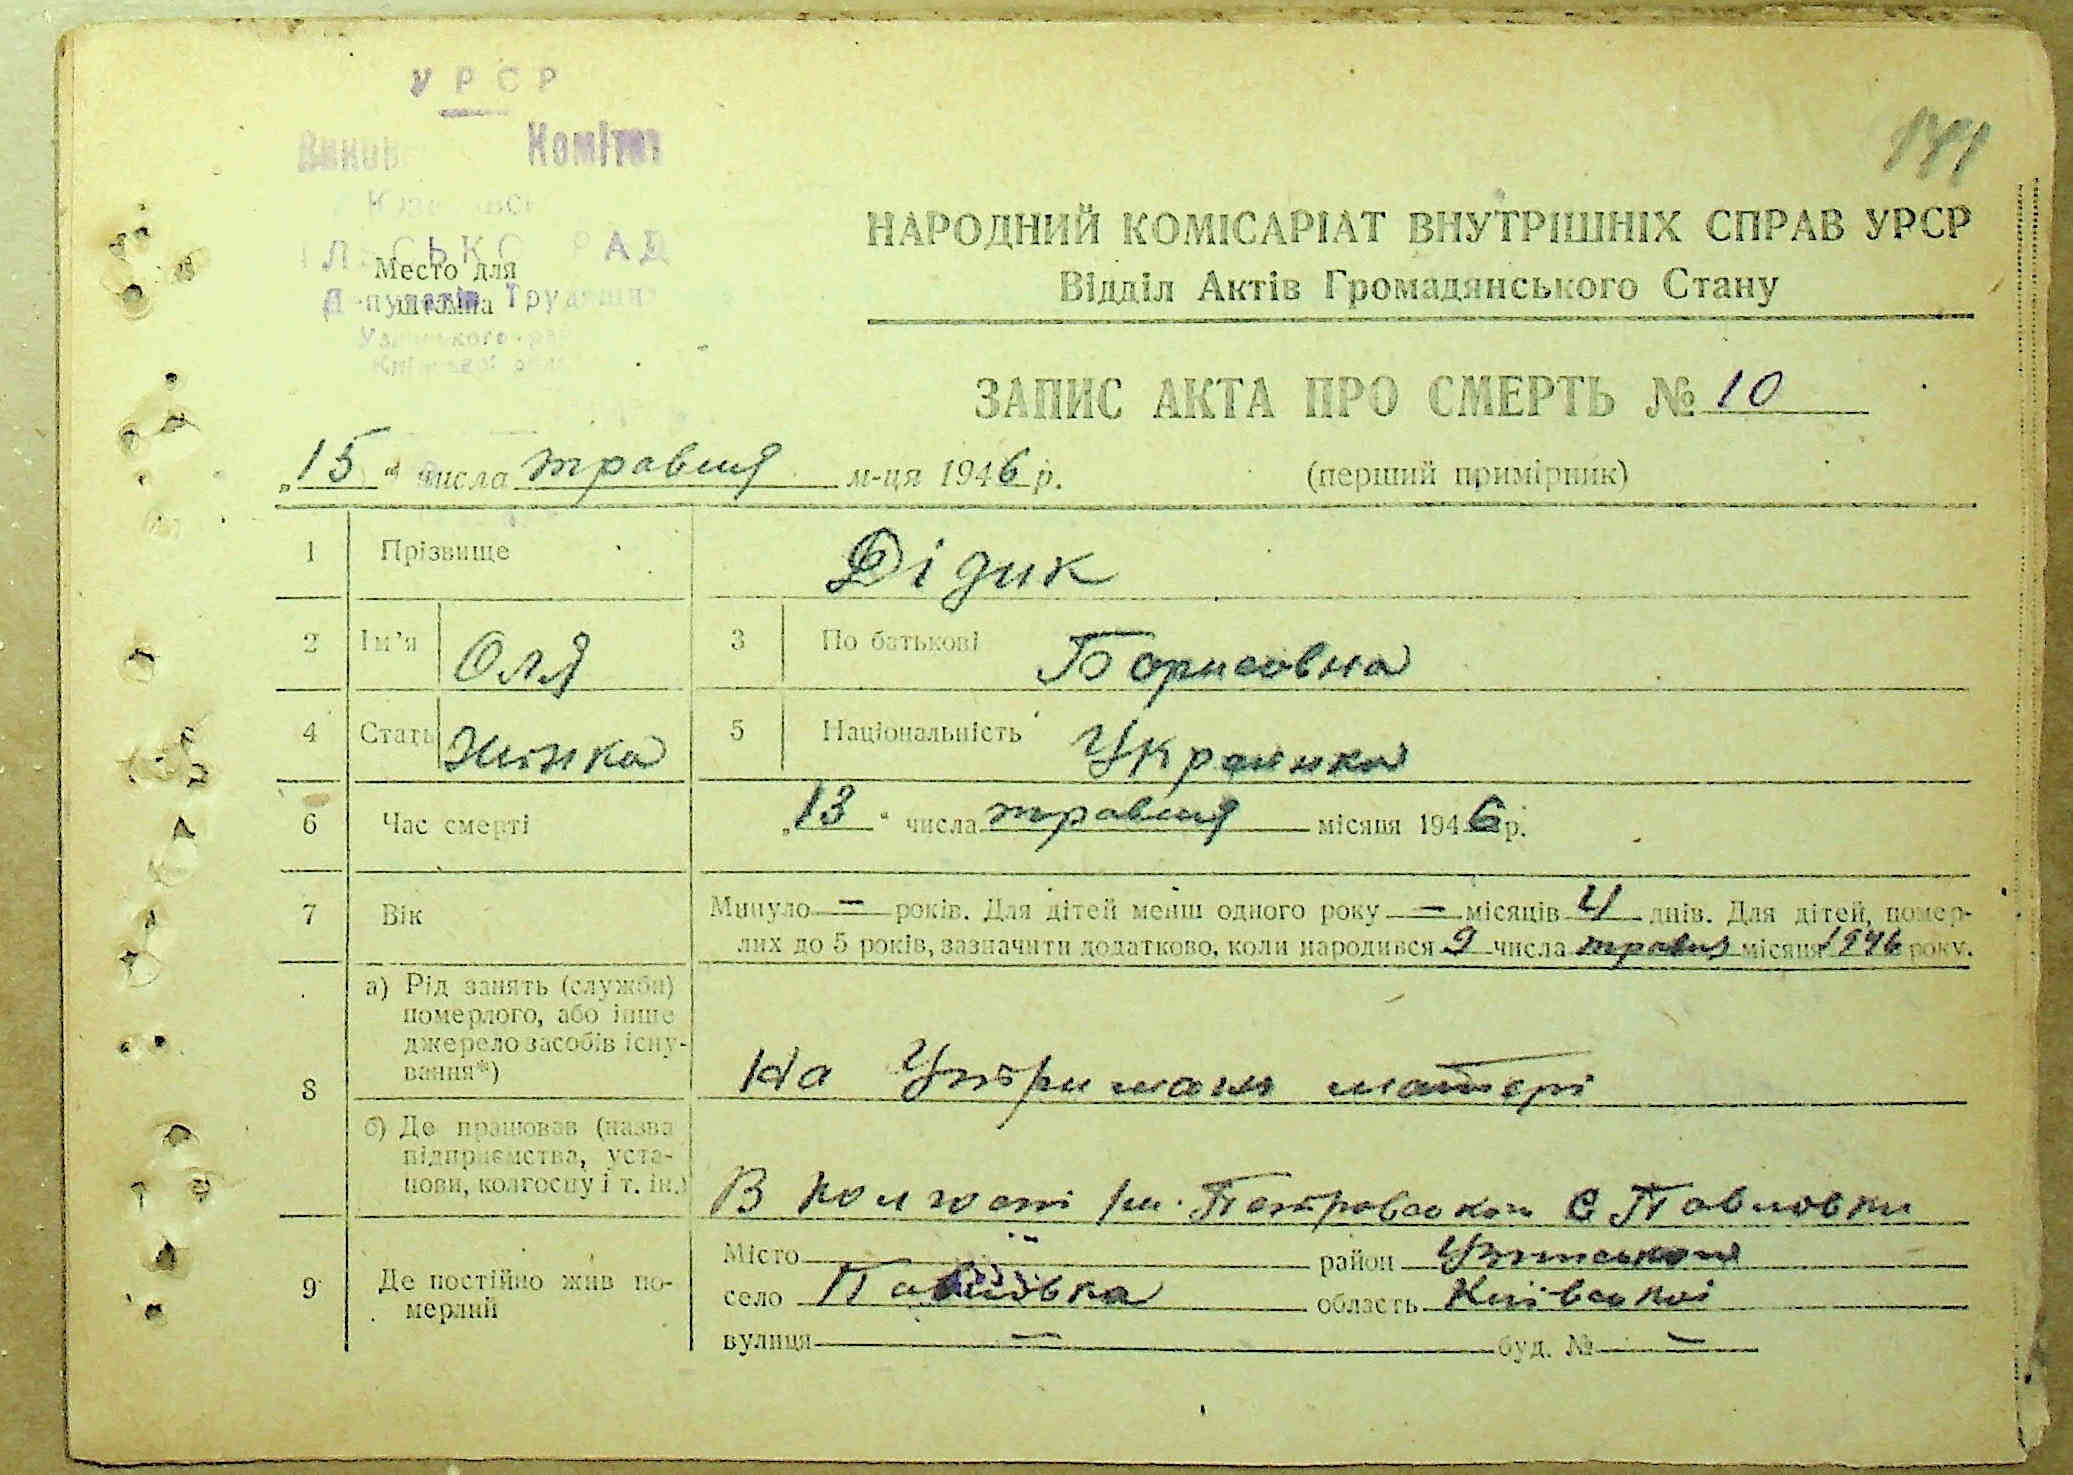 УРСР
Комітет
Место для
штампа
191
НАРОДНИЙ КОМІСАРІАТ ВНУТРІШНІХ СПРАВ УРСР
Відділ Актів Громадянського Стану
ЗАПИС АКТА ПРО СМЕРТЬ № 10
„15“ числа травня м-ця 1946 р. (перший примірник)
1 Прізвище Дідик
2 Ім’я Оля 3 По батькові Борисовна
4 Стать Жінка 5 Національність Українка
6 Час смерті „13“ числа травня місяця 1946 р.
7 Вік Минуло — років. Для дітей менш одного року — місяців 4 днів. Для дітей, помер-
лих до 5 років, зазначити додатково, коли народився 9 числа травня місяця 1946 року.
8 а) Рід занять (служби)
померлого, або інше
джерело засобів існу-
вання*) На Утримані матері
б) Де працював (назва
підприємства, уста-
нови, колгоспу і т. ін.) В колгоспі ім. Петровського с Павловки
9 Де постійно жив по-
мерлий
Місто — район Узинський
село Павлівка область Київської
вулиця — буд. № —